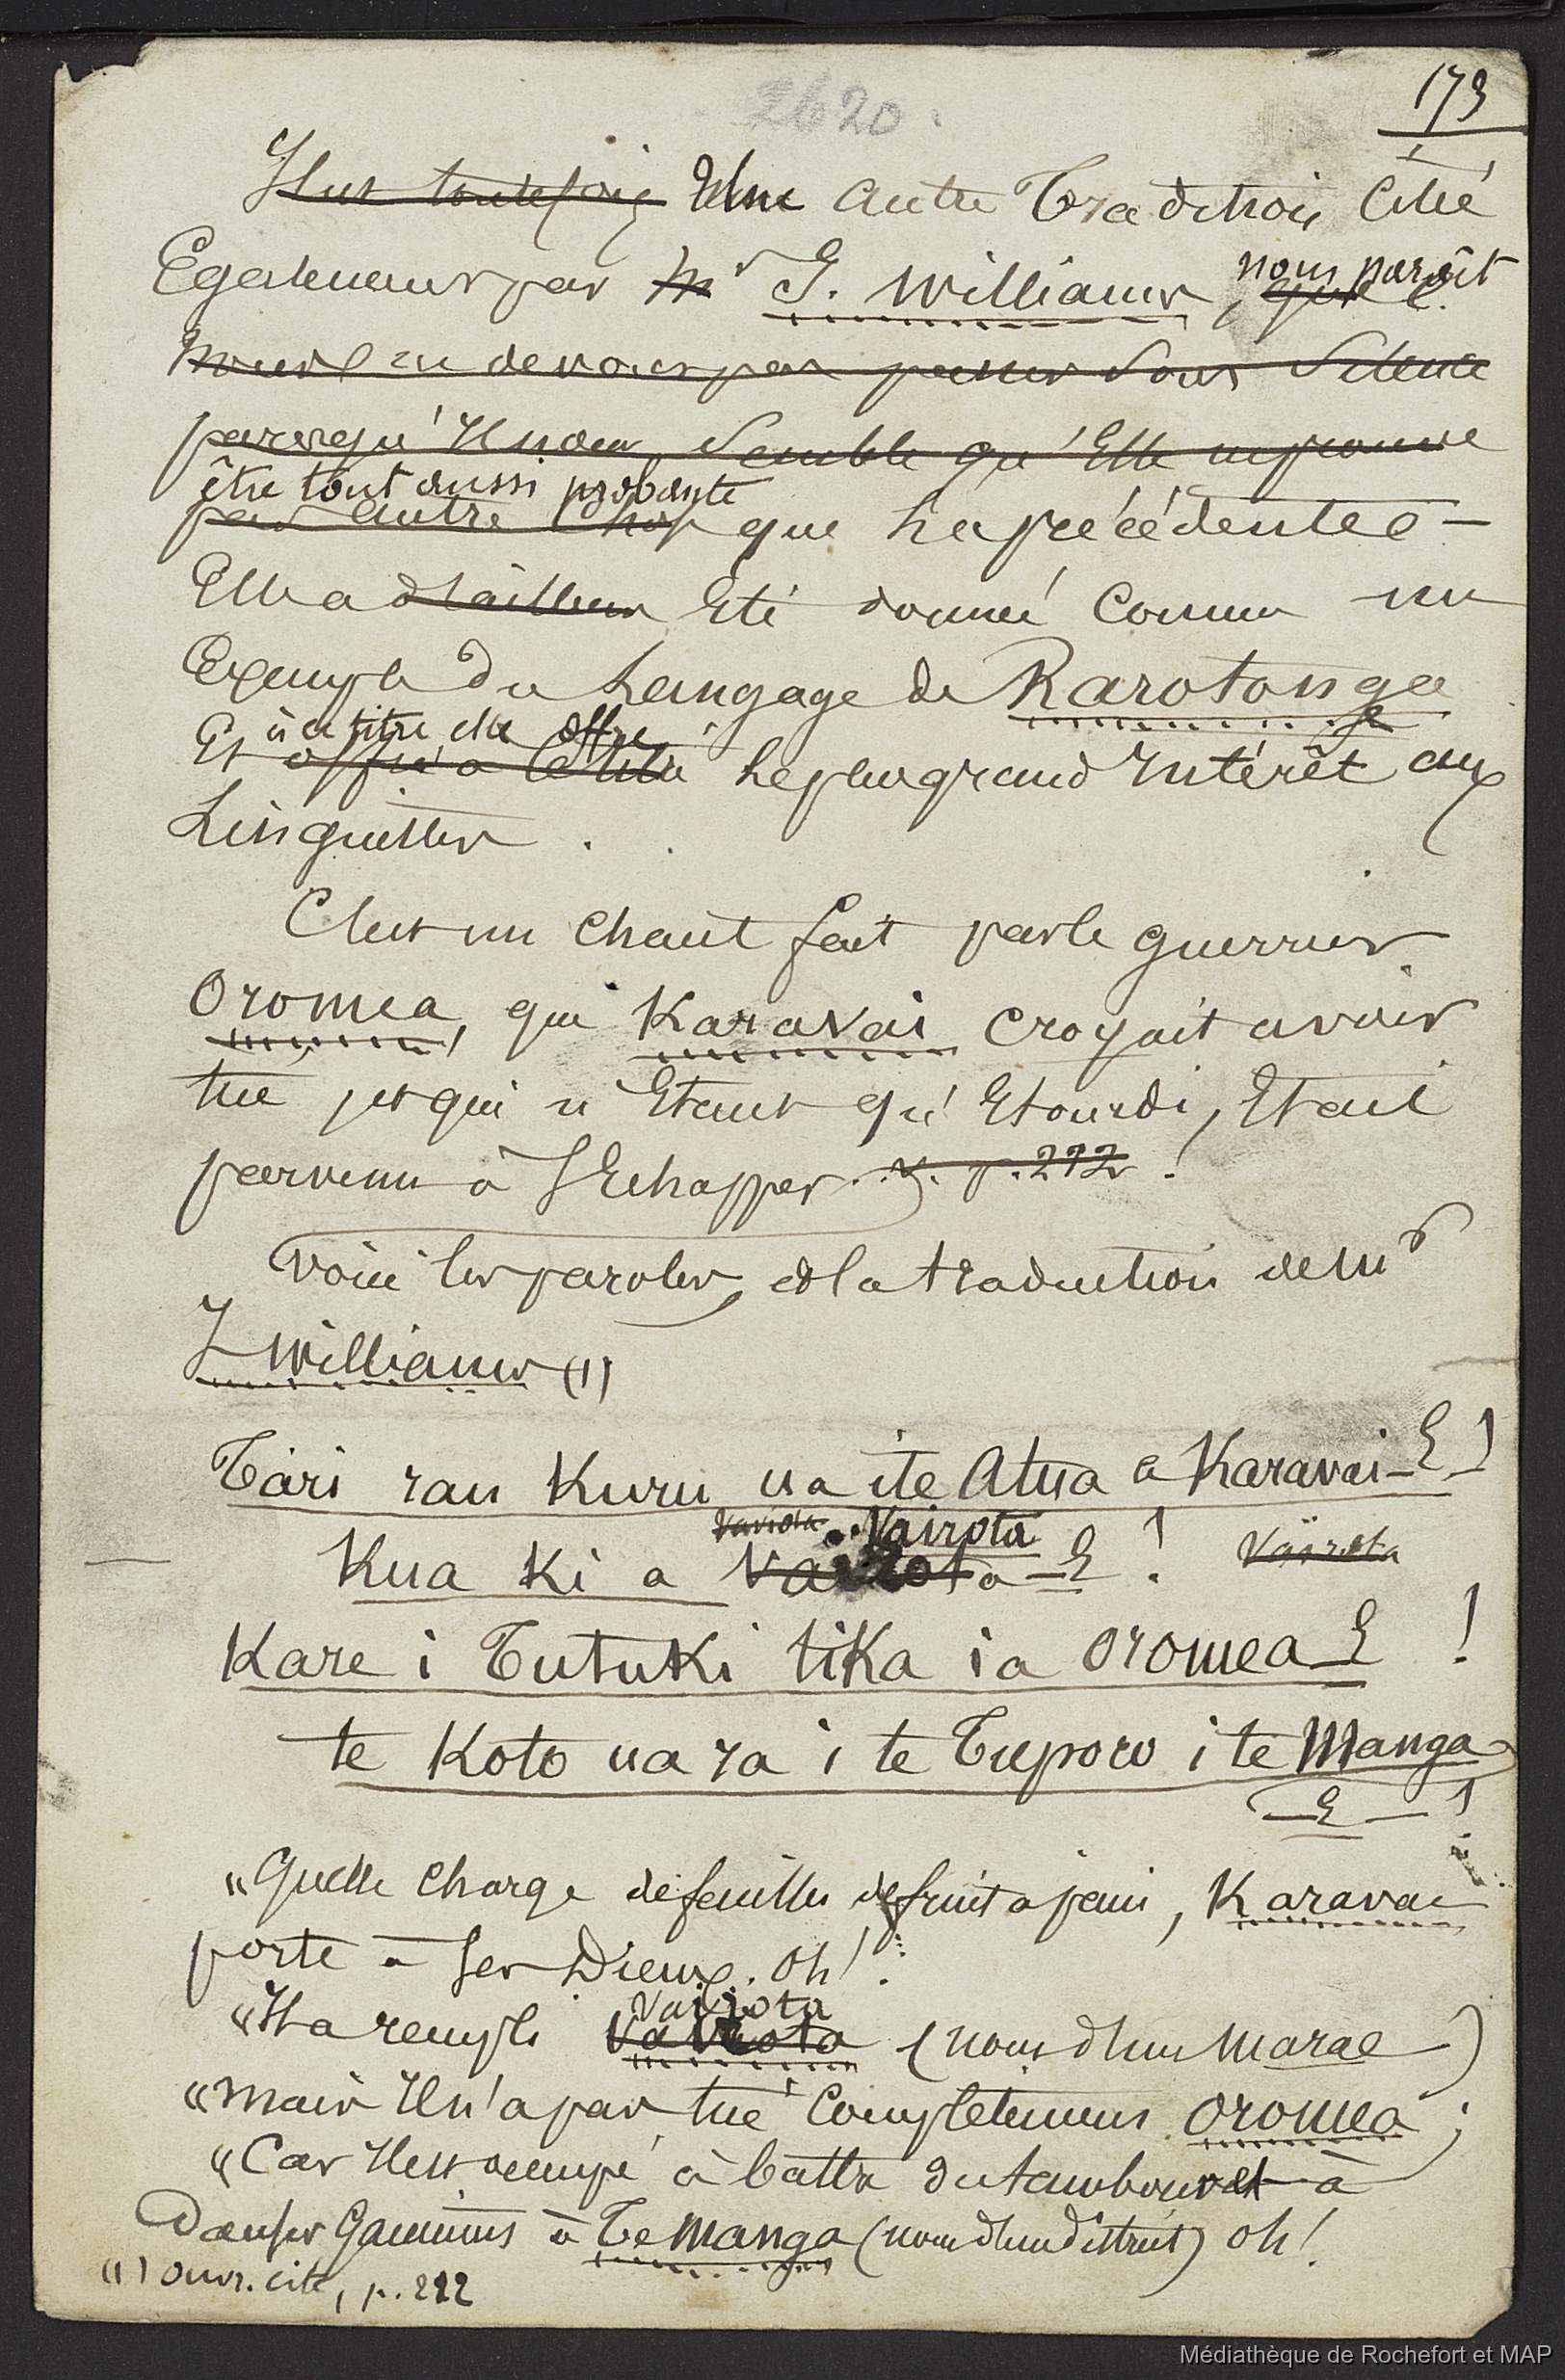 2620.
173
Il est toutefois Une autre Tradition, Citée
Egalement par Mr J. Williams, qui nous paraît
nous ne devons pas passer sous silence
parcequ'Il nous semble qu'Elle ne prouve
être tout aussi probante
pas autre chose que La précédente -
Elle a d'ailleurs Eté donnée Comme un
Exemple du Langage de Rarotonga
à ce titre elle offre
Et offre a le plus grand Intérêt aux
Linguistes.
C'est un Chant fait par le guerrier
Oromea, que Karavai croyait avoir
tué, et qui n'Etant qu'Etourdi, Etait
parvenu à s'Echapper. v. p. 212.
Voici les paroles, et la traduction de Mr
J Williams (1)
Tari rau Kuru ua ite Atua a Karavai-E-!
Vairota Vairota
Kua Ki a Vairota-E! Vairota
Kare i Tutuki tika ia Oromea-E !
te Koto ua ra i te Tuporo i te Manga
-E-!
"Quelle Charge de feuilles de fruit a pain, Karavai
porte à ses Dieux. Oh!
Vairota
"Il a rempli Vairota (nom d'un Marae)
"Mais Il n'a pas tué Complètement Oromea;
"Car Il est occupé à battre du tambour et à
Danser Gaiement à Te Manga (nom d'un district) Oh!
(1) Ouvr. cité, p. 212
Médiathèque de Rochefort et MAP